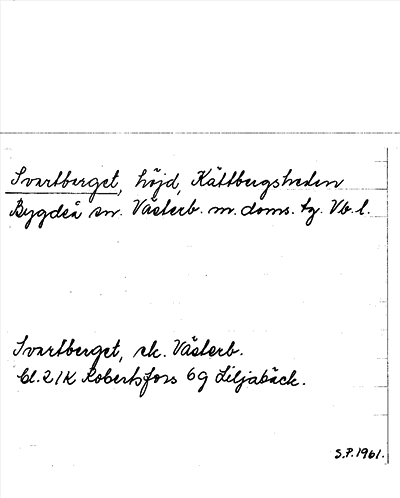 Svartberget, höjd, Kåttbergsheden
Bygdeå sn. Västerb. m. doms. tg. Vb. l.
Svartberget, ek. Västerb.
bl. 21K Robertsfors 6g Liljabäck.
S.P. 1961.